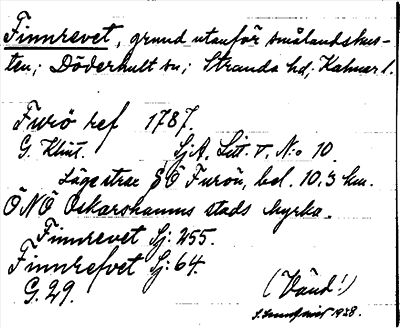 Finnrevet, grund utanför smålandskus-
ten; Döderhult sn; Stranda hd, Kalmar l.
Furö ref 1787.
G. Klint. SjA. Litt. V. No 10.
Läge strax SO Furön, bel. 10.3 km.
ÖNÖ Oskarshamns stads kyrka.
Finnrevet Sj: 255.
Finnrefvet Sj: 64.
G. 29.
(Vänd!)
1928.